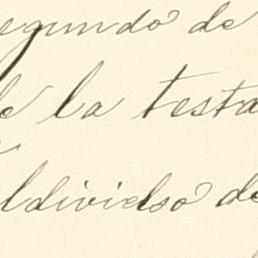 egundo de
de la testa
ldivielso de